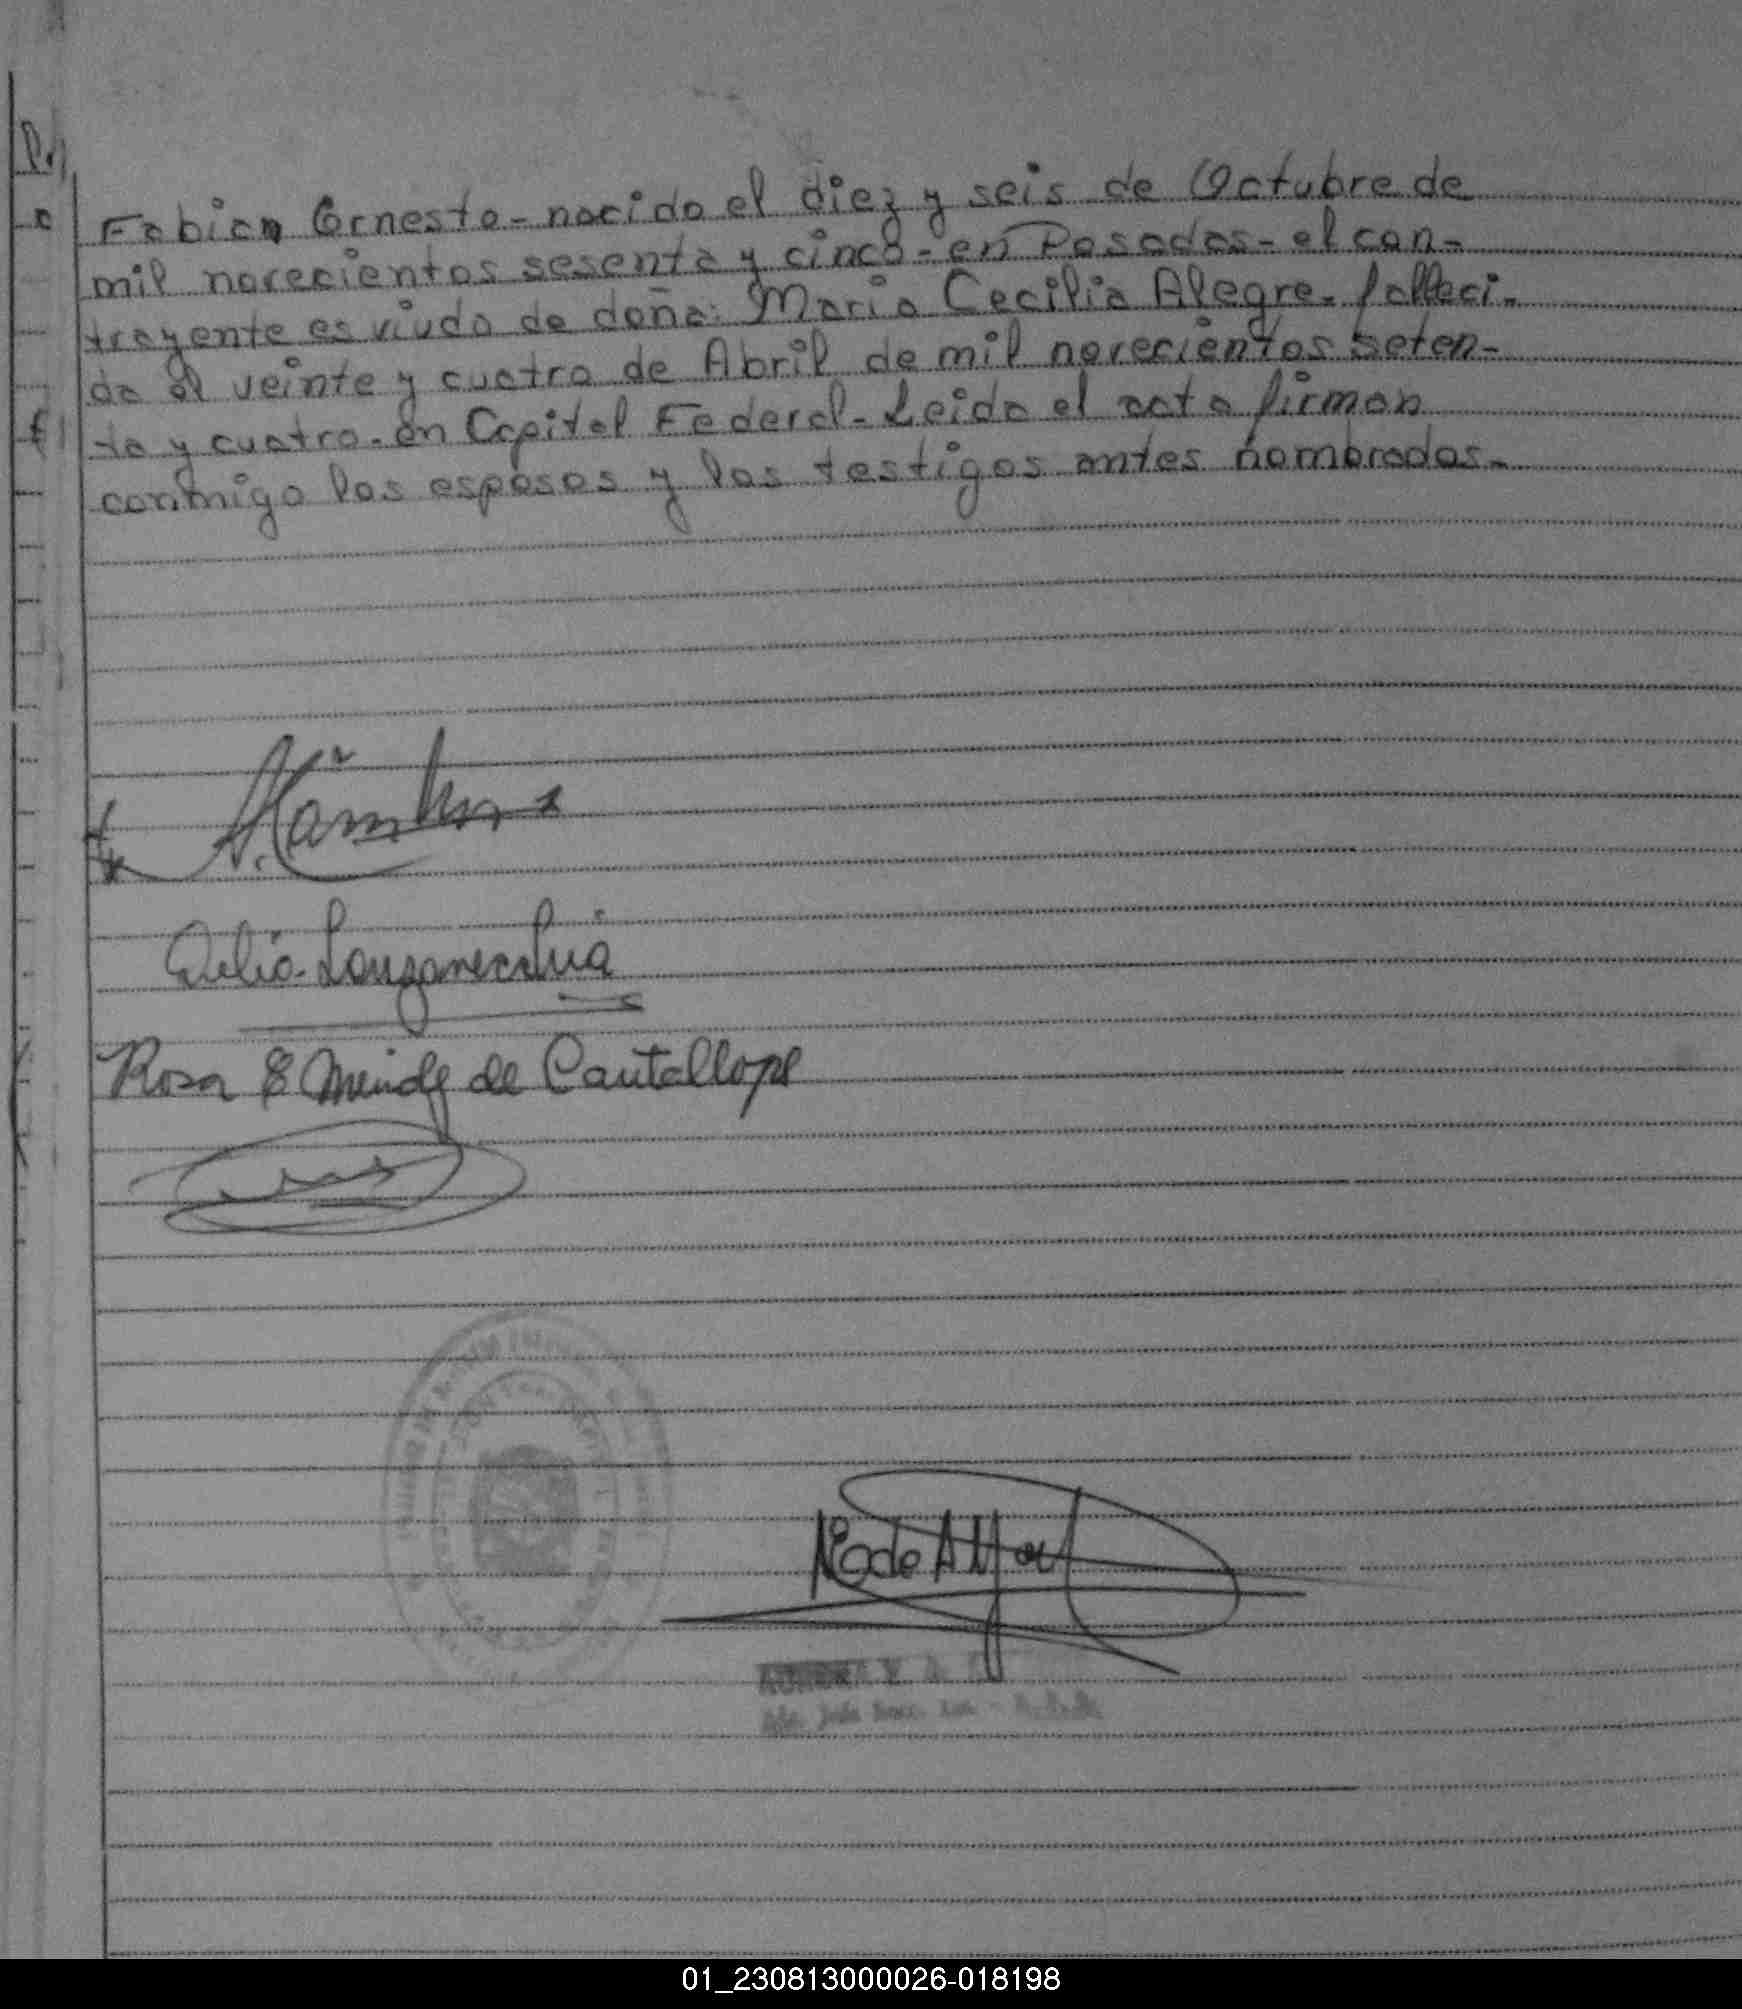 Fabian Ernesto - nacido el diez y seis de Octubre de
mil novecientos sesenta y cinco - en Posadas - el con-
trayente es viudo de doña: Maria Cecilia Alegre - falleci-
da el veinte y cuatro de Abril de mil novecientos seten-
ta y cuatro - en Capital Federal - Leida el acta firman
conmigo los esposos y los testigos antes nombrados -
Rosa E de Cantallops
01_230813000026-018198